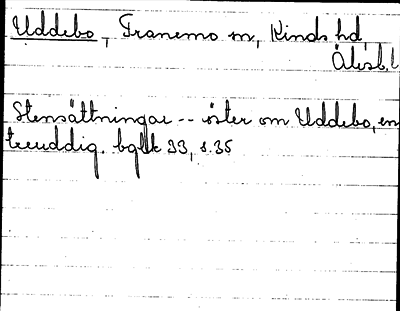 Uddebo, Tranemo sn, Kinds hd
Älvsb. l
Stensättningar -- öster om Uddebo, en
treuddig. bglk 33, s. 35